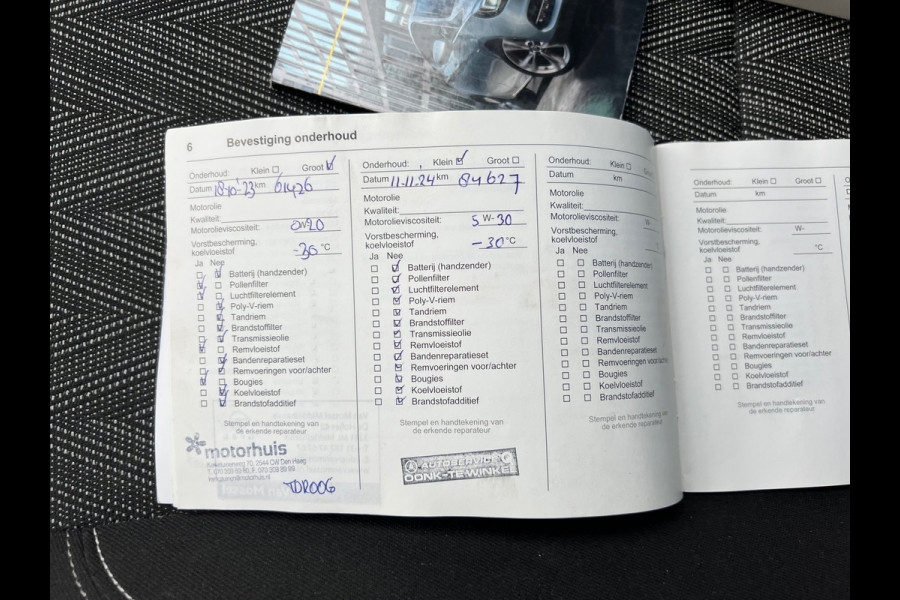 6 Bevestiging onderhoud
Onderhoud: Klein Groot
Datum 18-10-23 km 61426
Motorolie
Kwaliteit:
Motorolieviscositeit: 0W-20
Vorstbescherming, koelvloeistof -36 °C
Ja Nee
Batterij (handzender)
Pollenfilter
Luchtfilterelement
Poly-V-riem
Tandriem
Brandstoffilter
Transmissieolie
Remvloeistof
Bandenreparatieset
Remvoeringen voor/achter
Bougies
Koelvloeistof
Brandstofadditief
Stempel en handtekening van
de erkende reparateur
motorhuis
2544 CW Den Haag
TDR006
Onderhoud: Klein Groot
Datum 11-11-24 km 84627
Motorolie
Kwaliteit:
Motorolieviscositeit: 5 W-30
Vorstbescherming,
koelvloeistof -30 °C
Ja Nee
Batterij (handzender)
Pollenfilter
Luchtfilterelement
Poly-V-riem
Tandriem
Brandstoffilter
Transmissieolie
Remvloeistof
Bandenreparatieset
Remvoeringen voor/achter
Bougies
Koelvloeistof
Brandstofadditief
Stempel en handtekening van
de erkende reparateur
AUTOSERVICE
OONK-TE WINKEL
Onderhoud: Klein
Datum km
Motorolie
Kwaliteit:
Motorolieviscositeit:
Vorstbescherming,
koelvloeistof
Ja Nee
Batterij (handzender)
Pollenfilter
Luchtfilterelement
Poly-V-riem
Tandriem
Brandstoffilter
Transmissieolie
Remvloeistof
Bandenreparatieset
Remvoeringen voor/achter
Bougies
Koelvloeistof
Brandstofadditief
Stempel en handtekening van
de erkende reparateur
Onderhoud: Klein Groot
Datum km
Motorolie
Kwaliteit:
Motorolieviscositeit: W-
Vorstbescherming,
koelvloeistof °C
Ja Nee
Batterij (handzender)
Pollenfilter
Luchtfilterelement
Poly-V-riem
Tandriem
Brandstoffilter
Transmissieolie
Remvloeistof
Bandenreparatieset
Remvoeringen voor/achter
Bougies
Koelvloeistof
Brandstofadditief
Stempel en handtekening van
de erkende reparateur